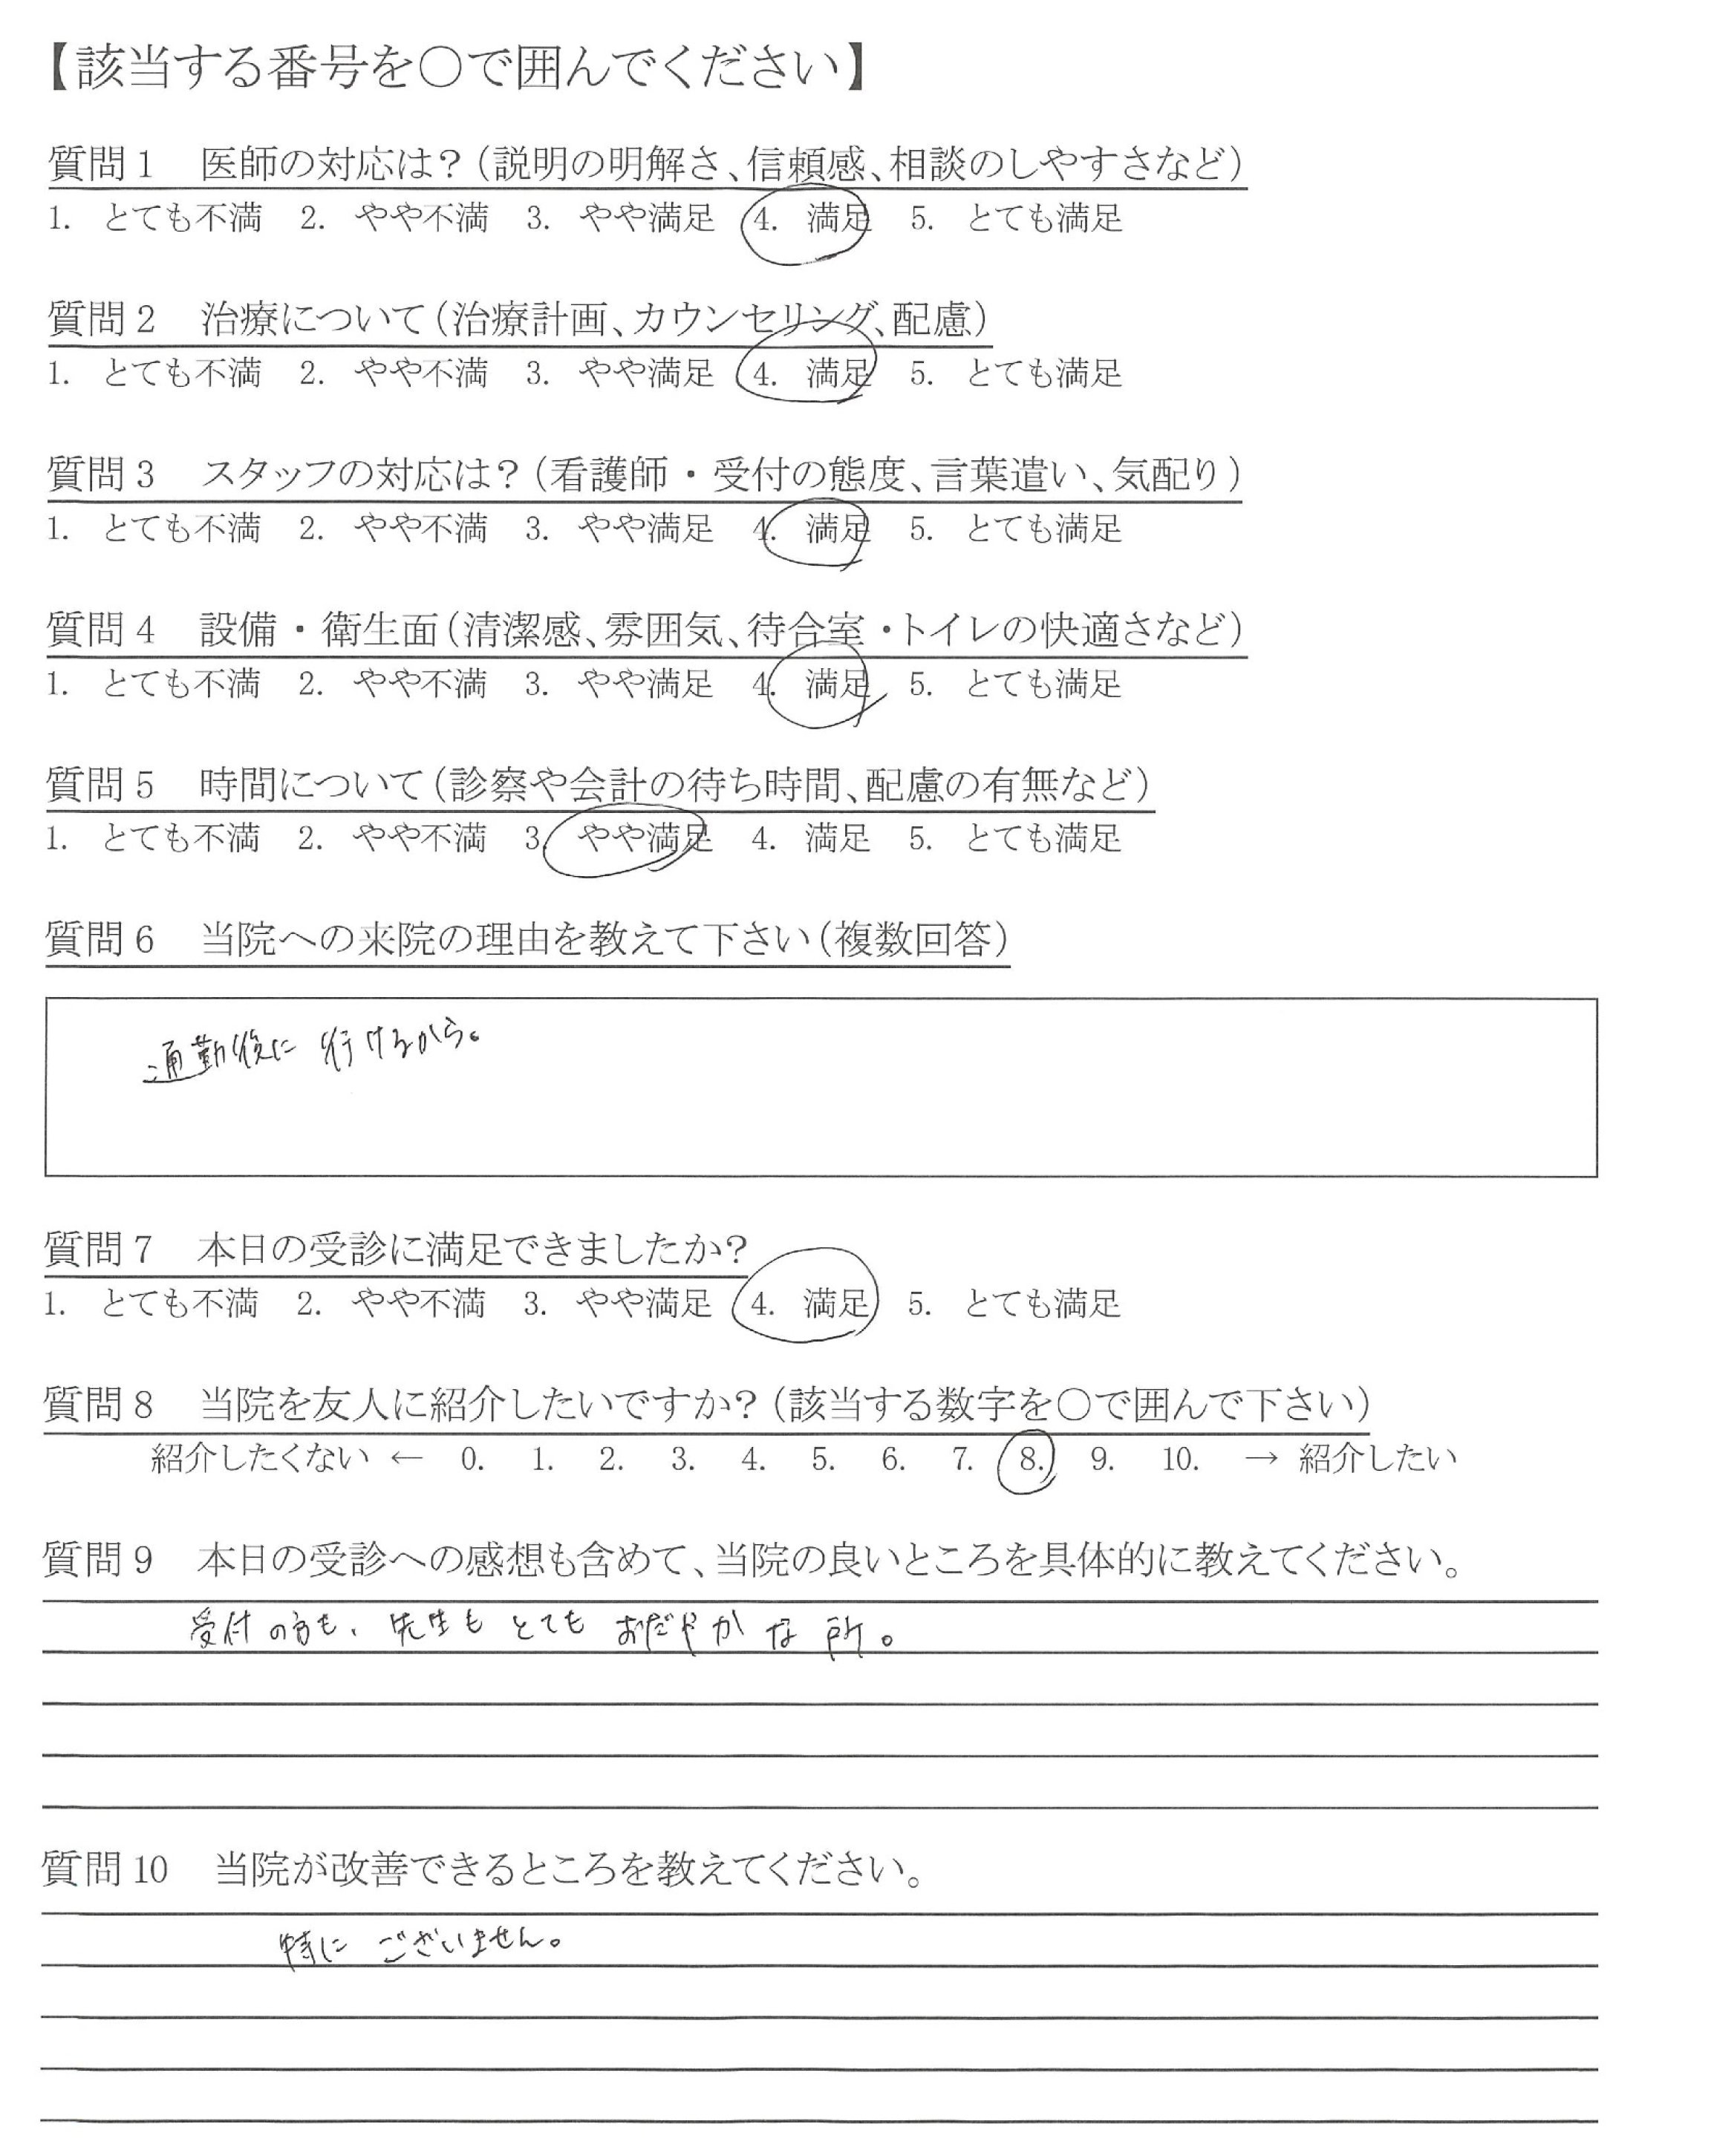 【該当する番号を○で囲んでください】
質問1　医師の対応は？（説明の明解さ、信頼感、相談のしやすさなど）
1.　とても不満　2.　やや不満　3.　やや満足　4.　満足　5.　とても満足
質問2　治療について（治療計画、カウンセリング、配慮）
1.　とても不満　2.　やや不満　3.　やや満足　4.　満足　5.　とても満足
質問3　スタッフの対応は？（看護師・受付の態度、言葉遣い、気配り）
1.　とても不満　2.　やや不満　3.　やや満足　4.　満足　5.　とても満足
質問4　設備・衛生面（清潔感、雰囲気、待合室・トイレの快適さなど）
1.　とても不満　2.　やや不満　3.　やや満足　4.　満足　5.　とても満足
質問5　時間について（診察や会計の待ち時間、配慮の有無など）
1.　とても不満　2.　やや不満　3.　やや満足　4.　満足　5.　とても満足
質問6　当院への来院の理由を教えて下さい（複数回答）
通勤後に行けるから。
質問7　本日の受診に満足できましたか？
1.　とても不満　2.　やや不満　3.　やや満足　4.　満足　5.　とても満足
質問8　当院を友人に紹介したいですか？（該当する数字を○で囲んで下さい）
紹介したくない ← 0. 1. 2. 3. 4. 5. 6. 7. 8. 9. 10. → 紹介したい
質問9　本日の受診への感想も含めて、当院の良いところを具体的に教えてください。
受付の方も、先生もとてもおだやかな所。
質問10　当院が改善できるところを教えてください。
特にございません。